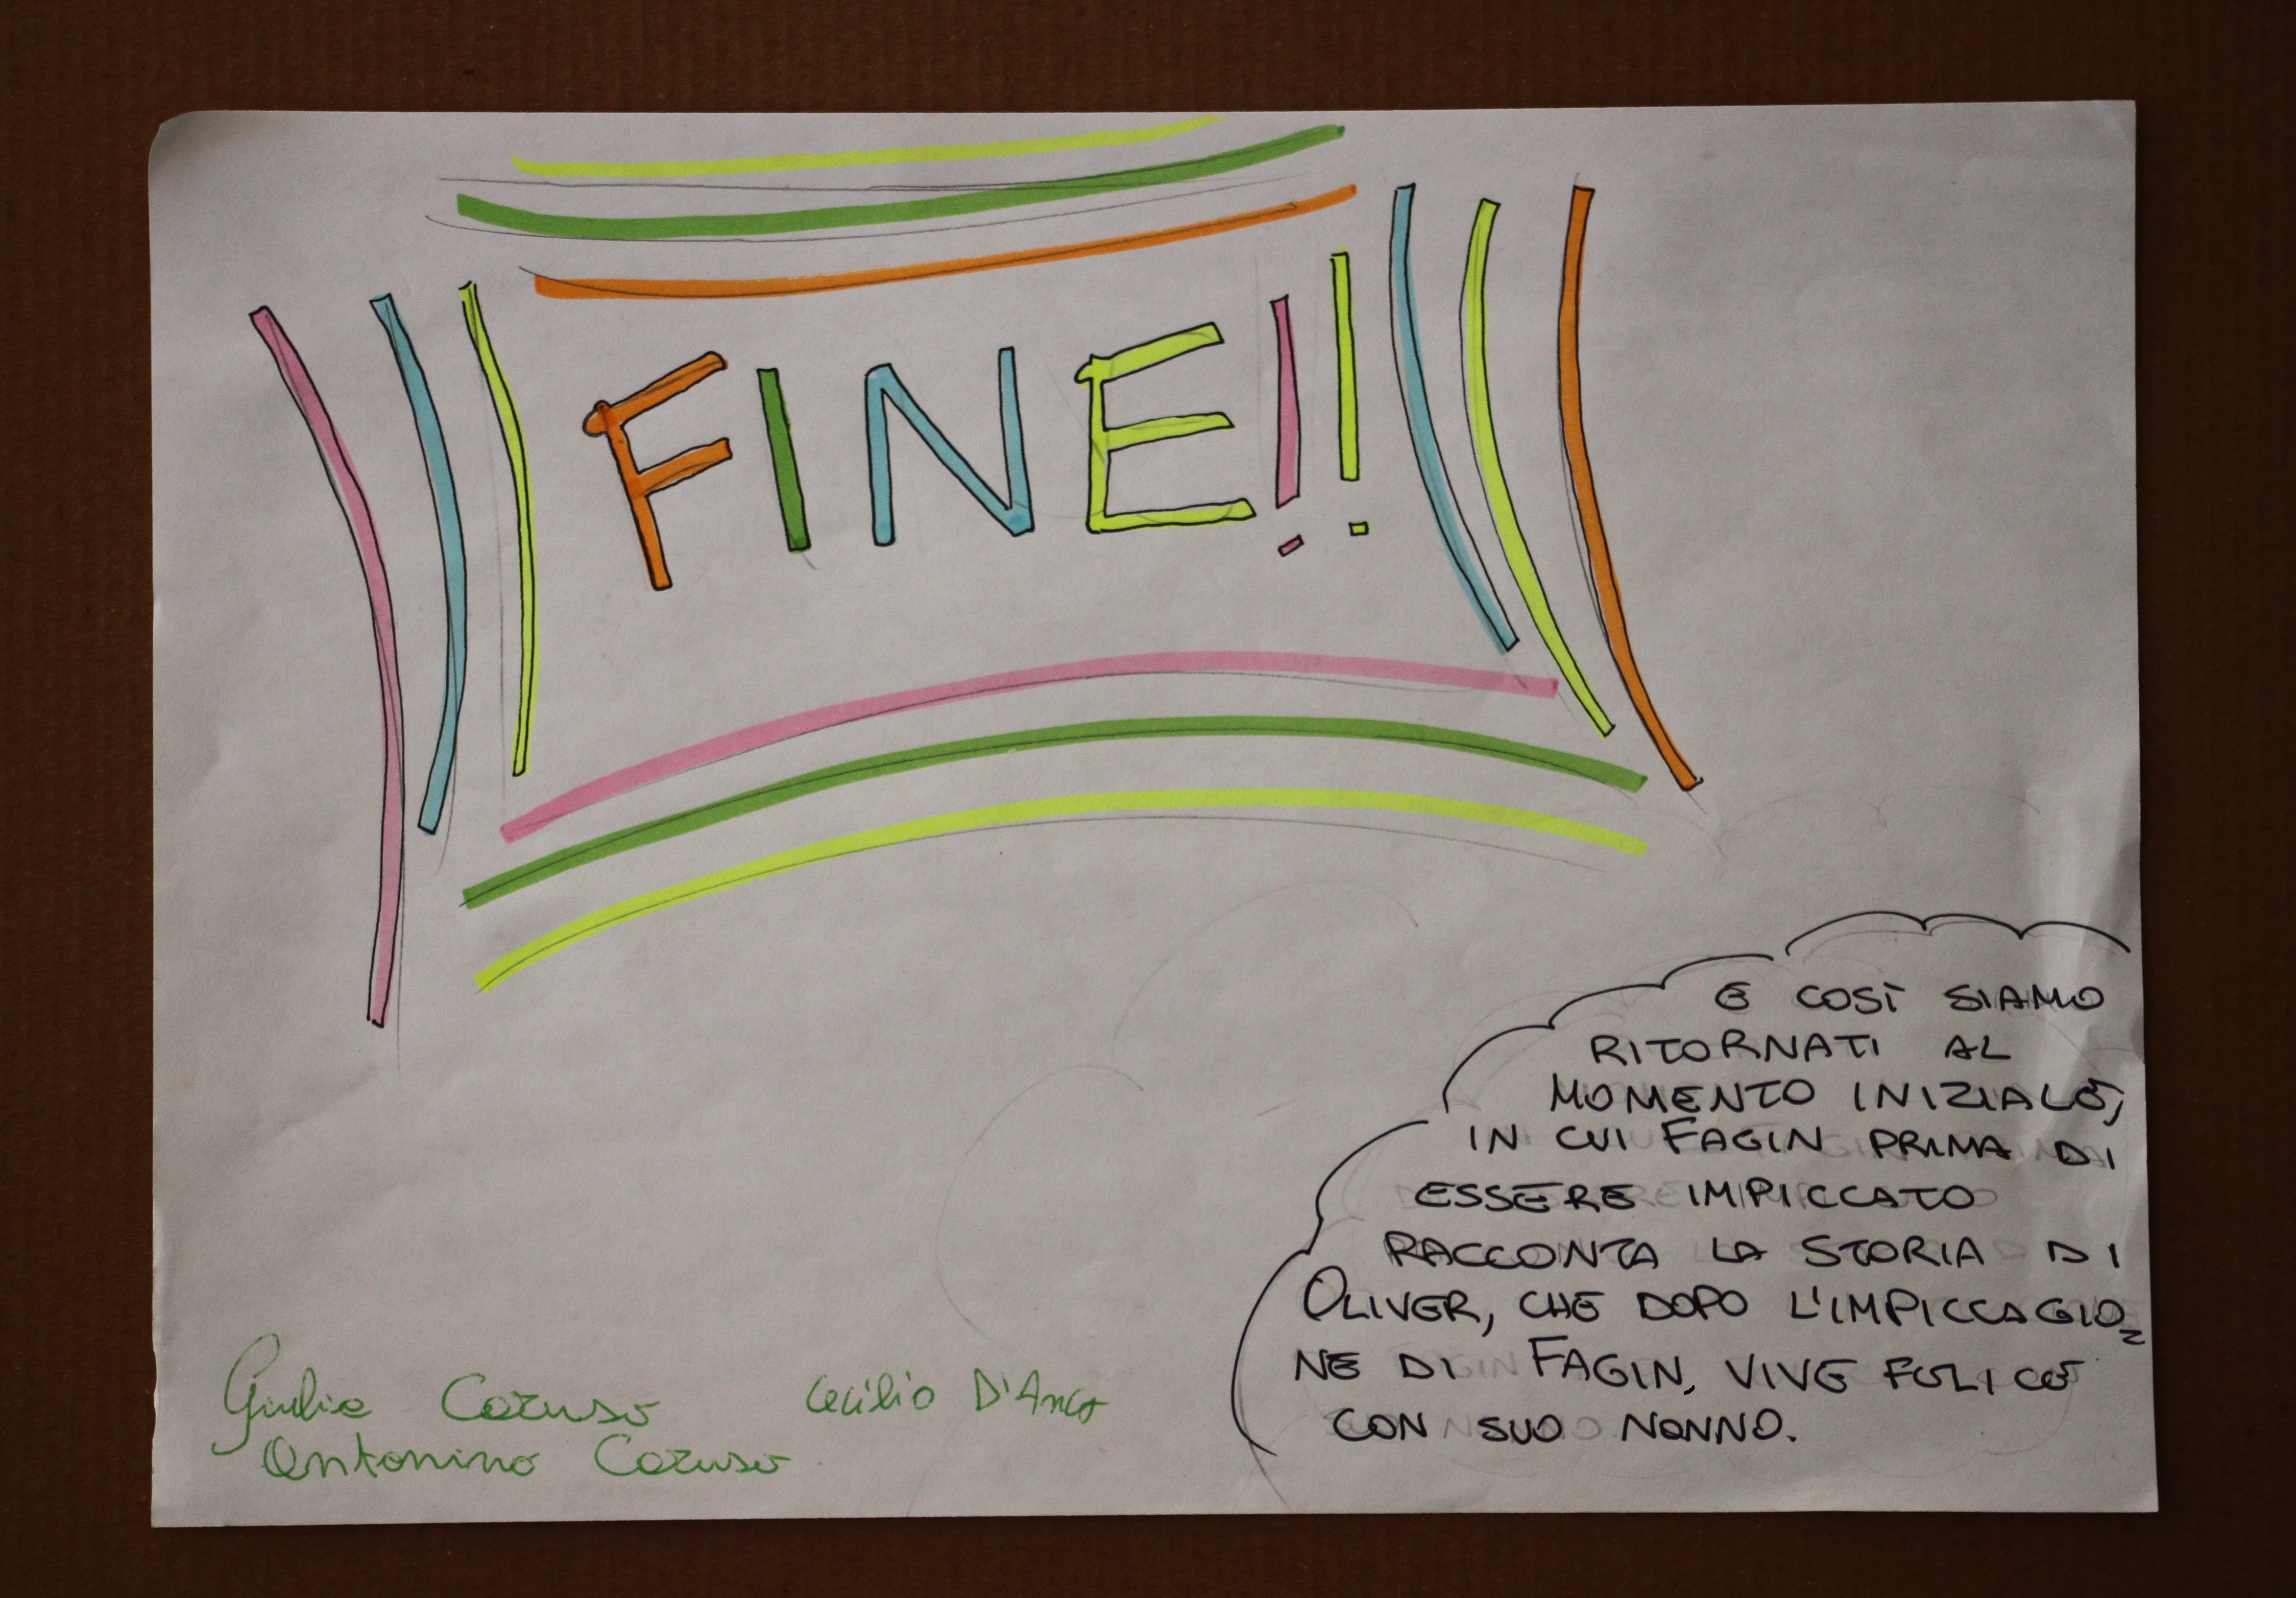 FINE!!
E COSÌ SIAMO
RITORNATI AL
MOMENTO INIZIALE,
IN CUI FAGIN PRIMA DI
ESSERE IMPICCATO
RACCONTA LA STORIA DI
OLIVER, CHE DOPO L'IMPICCAGIO=
NE DI FAGIN, VIVE FELICE
CON SUO NONNO.
Giulia Caruso
Cecilia D'Anca
Antonino Caruso